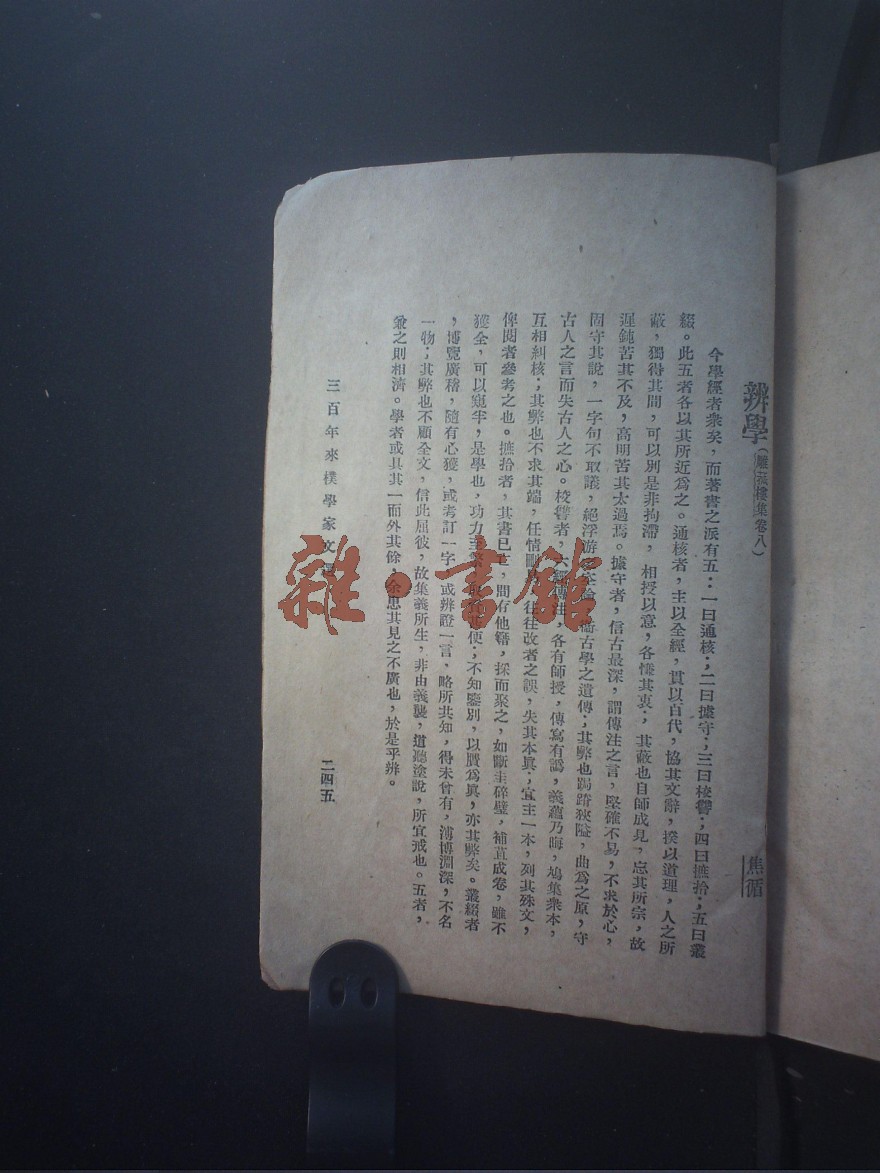 辨學(雕菰樓集卷八) 焦循
今學經者衆矣，而著書之派有五：一曰通核；二曰據守；三曰校讐；四曰摭拾；五曰叢
綴。此五者各以其所近爲之。通核者，主以全經，貫以百代，協其文辭，揆以道理，人之所
蔽，獨得其間，可以別是非拘滯，相授以意，各慊其衷；其蔽也自師成見，忘其所宗，故
遲鈍苦其不及，高明苦其太過焉。據守者，信古最深，謂傳注之言，堅確不易，不求於心，
固守其說，一字句不取議，絕浮游之空論，衞古學之遺傳；其弊也跼蹐狹隘，曲爲之原，守
古人之言而失古人之心。校讐者，六經傳注，各有師授，傳寫有譌，義蘊乃晦，鳩集衆本，
互相糾核；其弊也不求其端，任情刪，往往改者之誤，失其本真；宜主一本，列其殊文，
俾閱者參考之也。摭拾者，其書已亡，間存他籍，採而聚之，如斷圭碎璧，補苴成卷，雖不
獲全，可以窺半，是學也，功力至繁，取便；不知鑒別，以贋爲真，亦其弊矣。叢綴者
，博覽廣稽，隨有心獲，或考訂一字，或辨證一言，略所共知，得未曾有，溥博淵深，不名
一物；其弊也不顧全文，信此屈彼，故集義所生，非由義襲，道聽塗說，所宜戒也。五者，
兼之則相濟。學者或具其一而外其餘，余患其見之不廣也，於是乎辨。
三百年來樸學家文
二四五
雜·書館